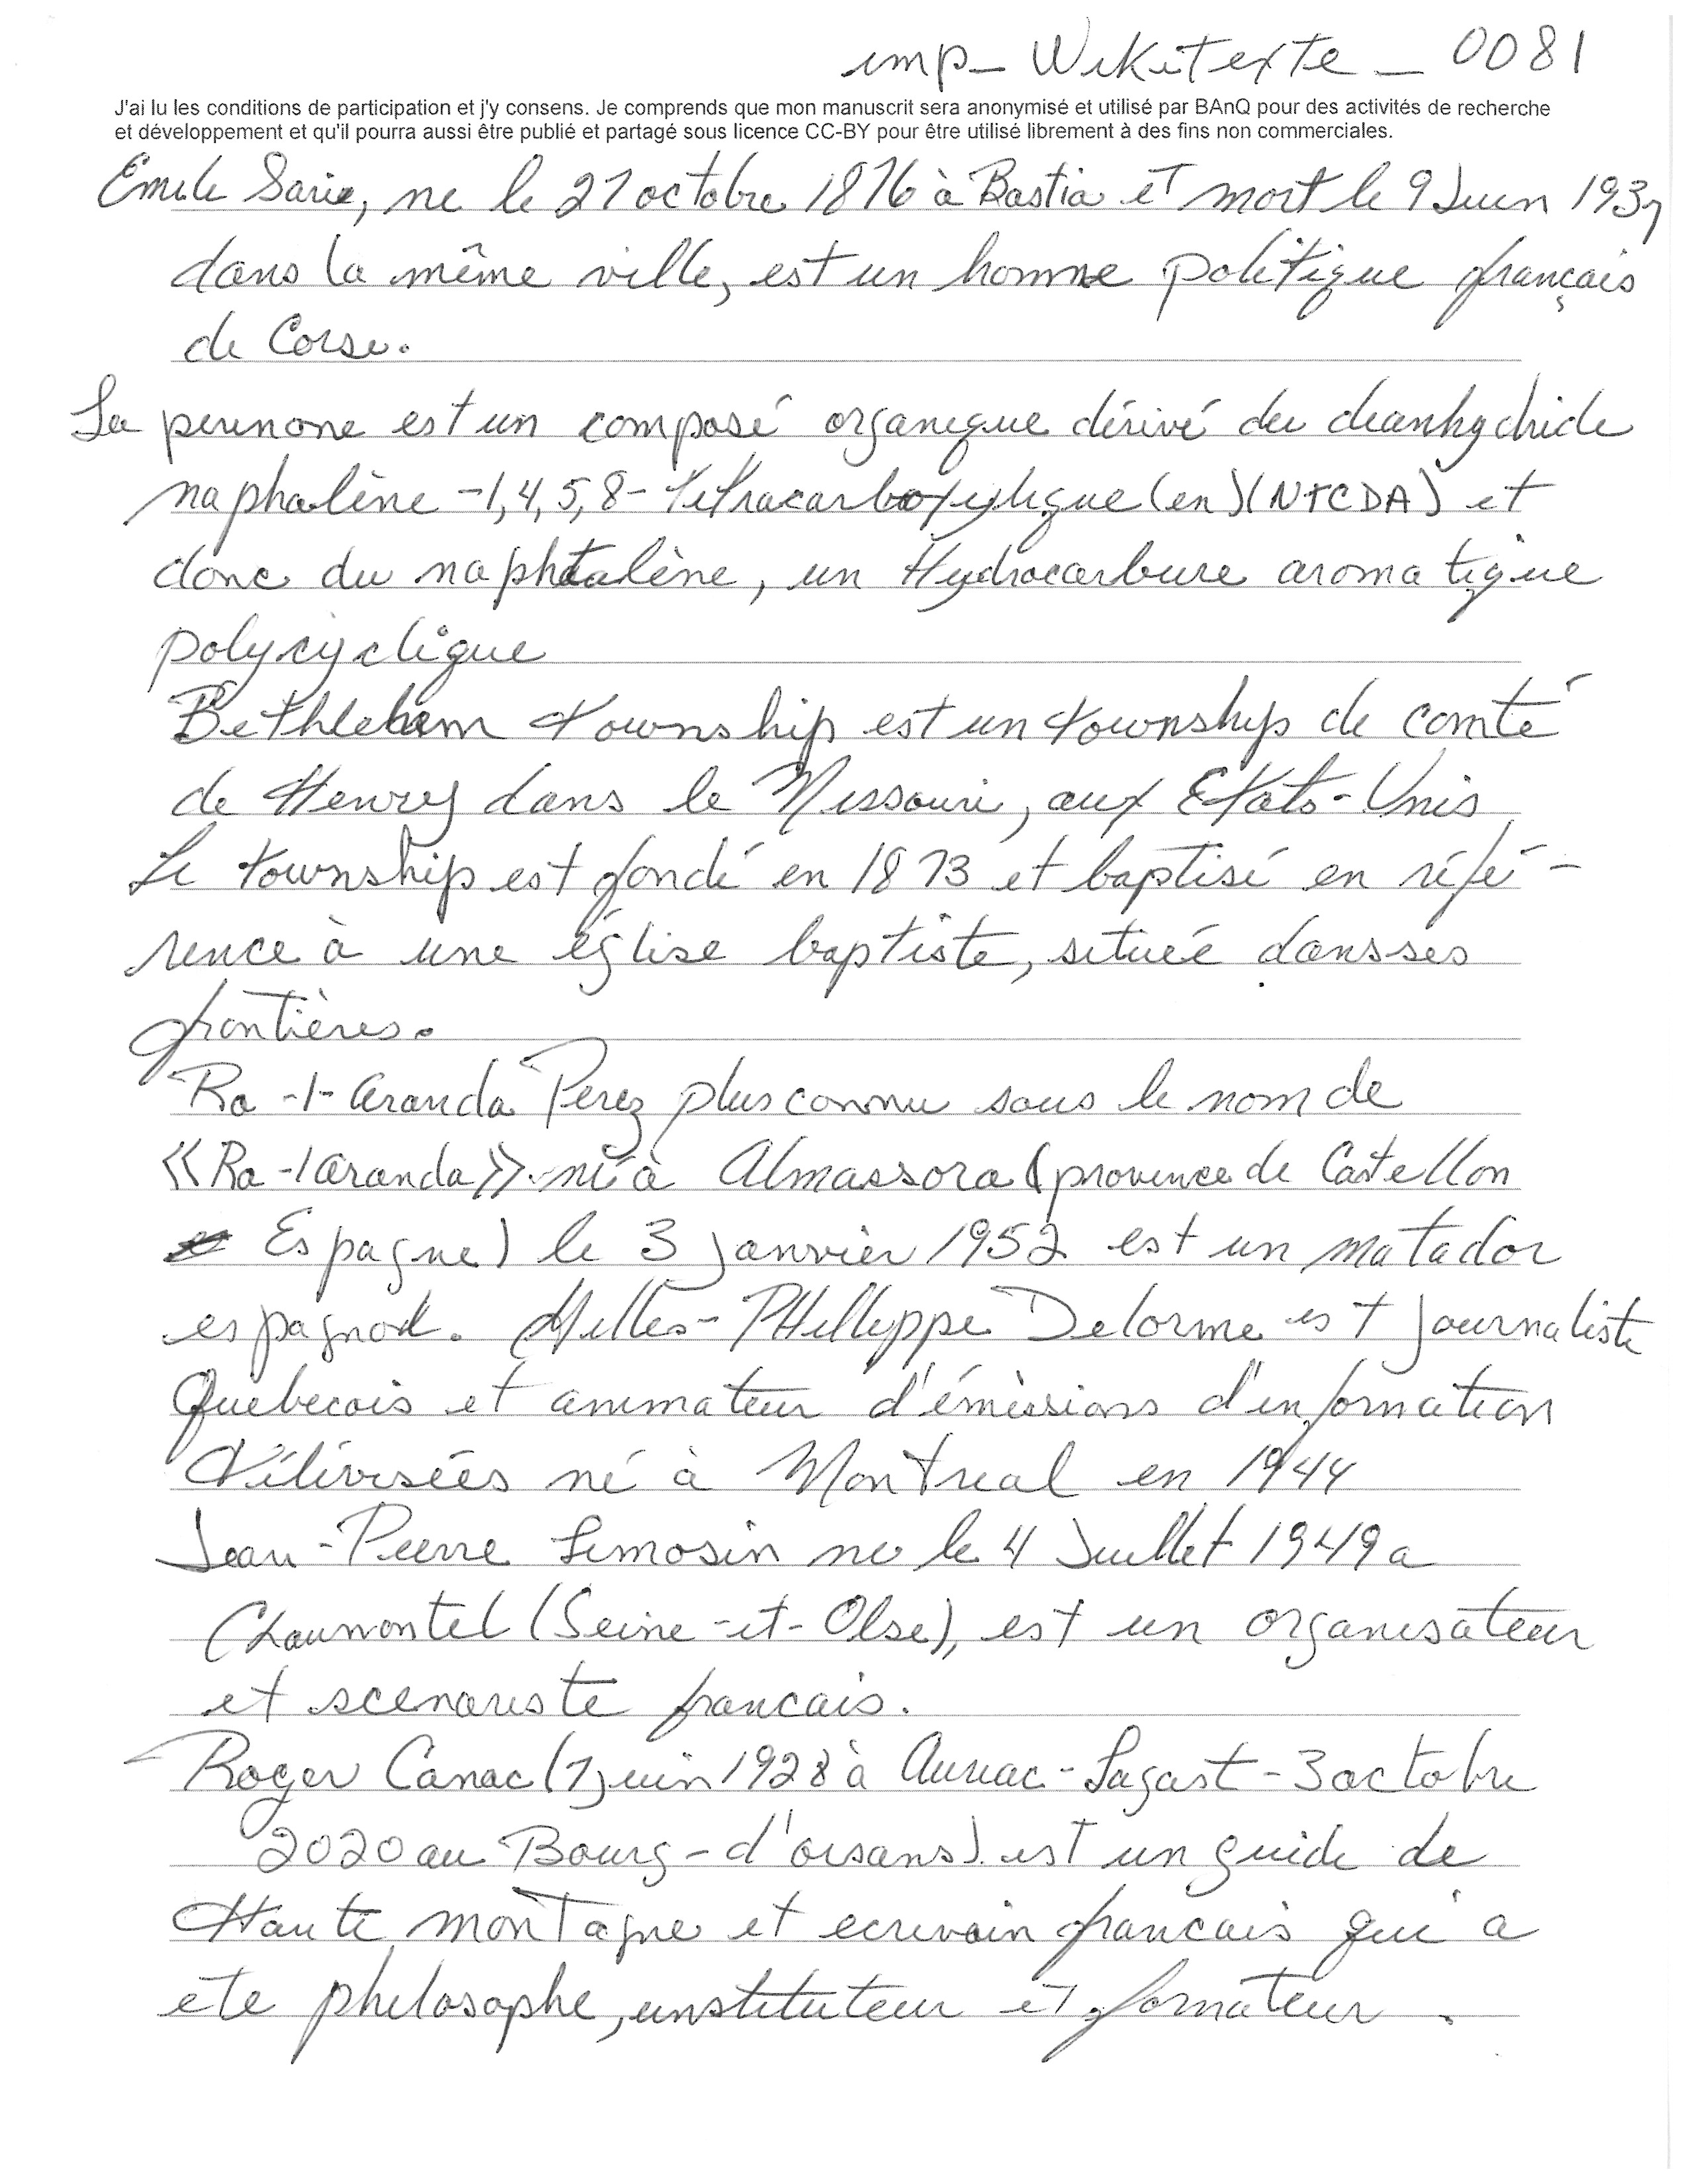 imp_Wikitexte_0081
J'ai lu les conditions de participation et j'y consens. Je comprends que mon manuscrit sera anonymisé et utilisé par BAnQ pour des activités de recherche
et développement et qu'il pourra aussi être publié et partagé sous licence CC-BY pour être utilisé librement à des fins non commerciales.
Emile Sarie, ne le 27 octobre 1876 à Bastia et mort le 9 Juin 1937
dans la même ville, est un homme politique français
de Corse.
La perinone est un composé organique dérivé du dianhydride
naphalène -1,4,5,8- tétracarboxylique (en) (NTCDA) et
donc du naphtalène, un Hydrocarbure aromatique
polycyclique
Bethlehem township est un township de comté
de Henry dans le Missouri, aux Etats-Unis
Le township est fondé en 1873 et baptisé en réfé-
rence à une église baptiste, située dans ses
frontières.
Ra-l-Aranda Perez plus connu sous le nom de
«Ra-l Aranda» né à Almassora (province de Castellon
Espagne) le 3 janvier 1952 est un matador
espagnol. Gilles-PHilippe Delorme est journaliste
Quebecois et animateur d'émissions d'information
télévisées né à Montreal en 1944
Jean-Pierre Limosin ne le 4 Juillet 1949 a
Chaumontel (Seine-et-OIse), est un organisateur
et scenariste francais.
Roger Canac (7 juin 1928 à Auriac-Lagast - 3 octobre
2020 au Bourg-d'oisans) est un guide de
Haute montagne et ecrivain francais qui a
ete philosophe, instituteur et formateur.